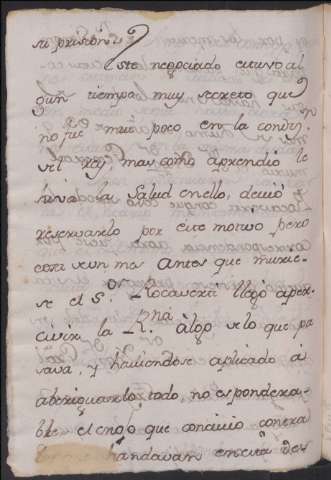 su prision?
Este negociado estuvo al
gun tiempo muy secreto que
no fue muy poco en la condi.n
del rey, mas como aprendio le
hiva la salud en ello, devio
reservarlo por este motivo pero
cosa de un mes antes que murie-
se el S.or Rocaverti llegó aper
civir la R.na álgo de lo que pa
sava, y haviendose aplicado á
aberiguarlo todo, no es pondera
ble el enojo que concivio contra
handavan en esta de